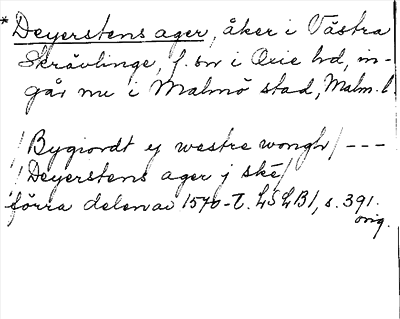 *Deyerstens ager, åker i Västra
Skrävlinge, f. sn i Oxie hd, in-
går nu i Malmö stad, Malm. l.
/Bygiordt ij westre wongh/ ---
/Deyerstens ager j ské/
förra delen av 1570-t. LSLB1, s. 391.
orig.